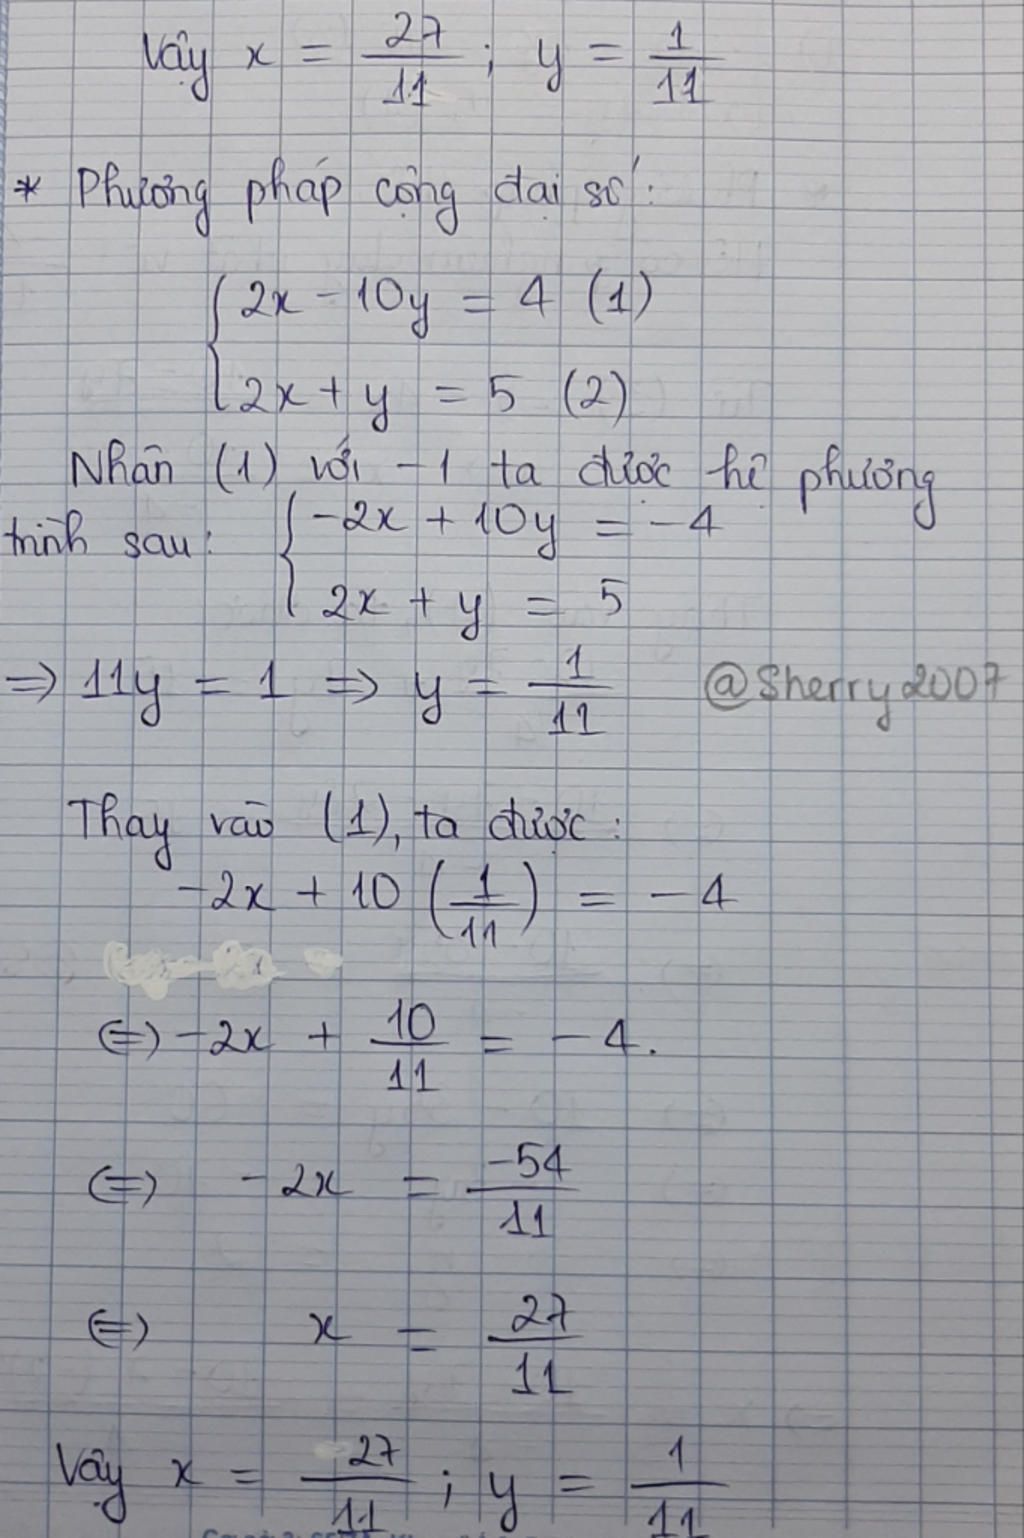 Vậy x = 27/11 ; y = 1/11
* Phương pháp cộng đại số:
{ 2x - 10y = 4 (1)
2x + y = 5 (2)
Nhân (1) với -1 ta được hệ phương
trình sau: { -2x + 10y = -4
2x + y = 5
=> 11y = 1 => y = 1/11 @Sherry2007
Thay vào (1), ta được:
-2x + 10 (1/11) = -4
<=> -2x + 10/11 = -4.
<=> -2x = -54/11
<=> x = 27/11
Vậy x = 27/11 ; y = 1/11